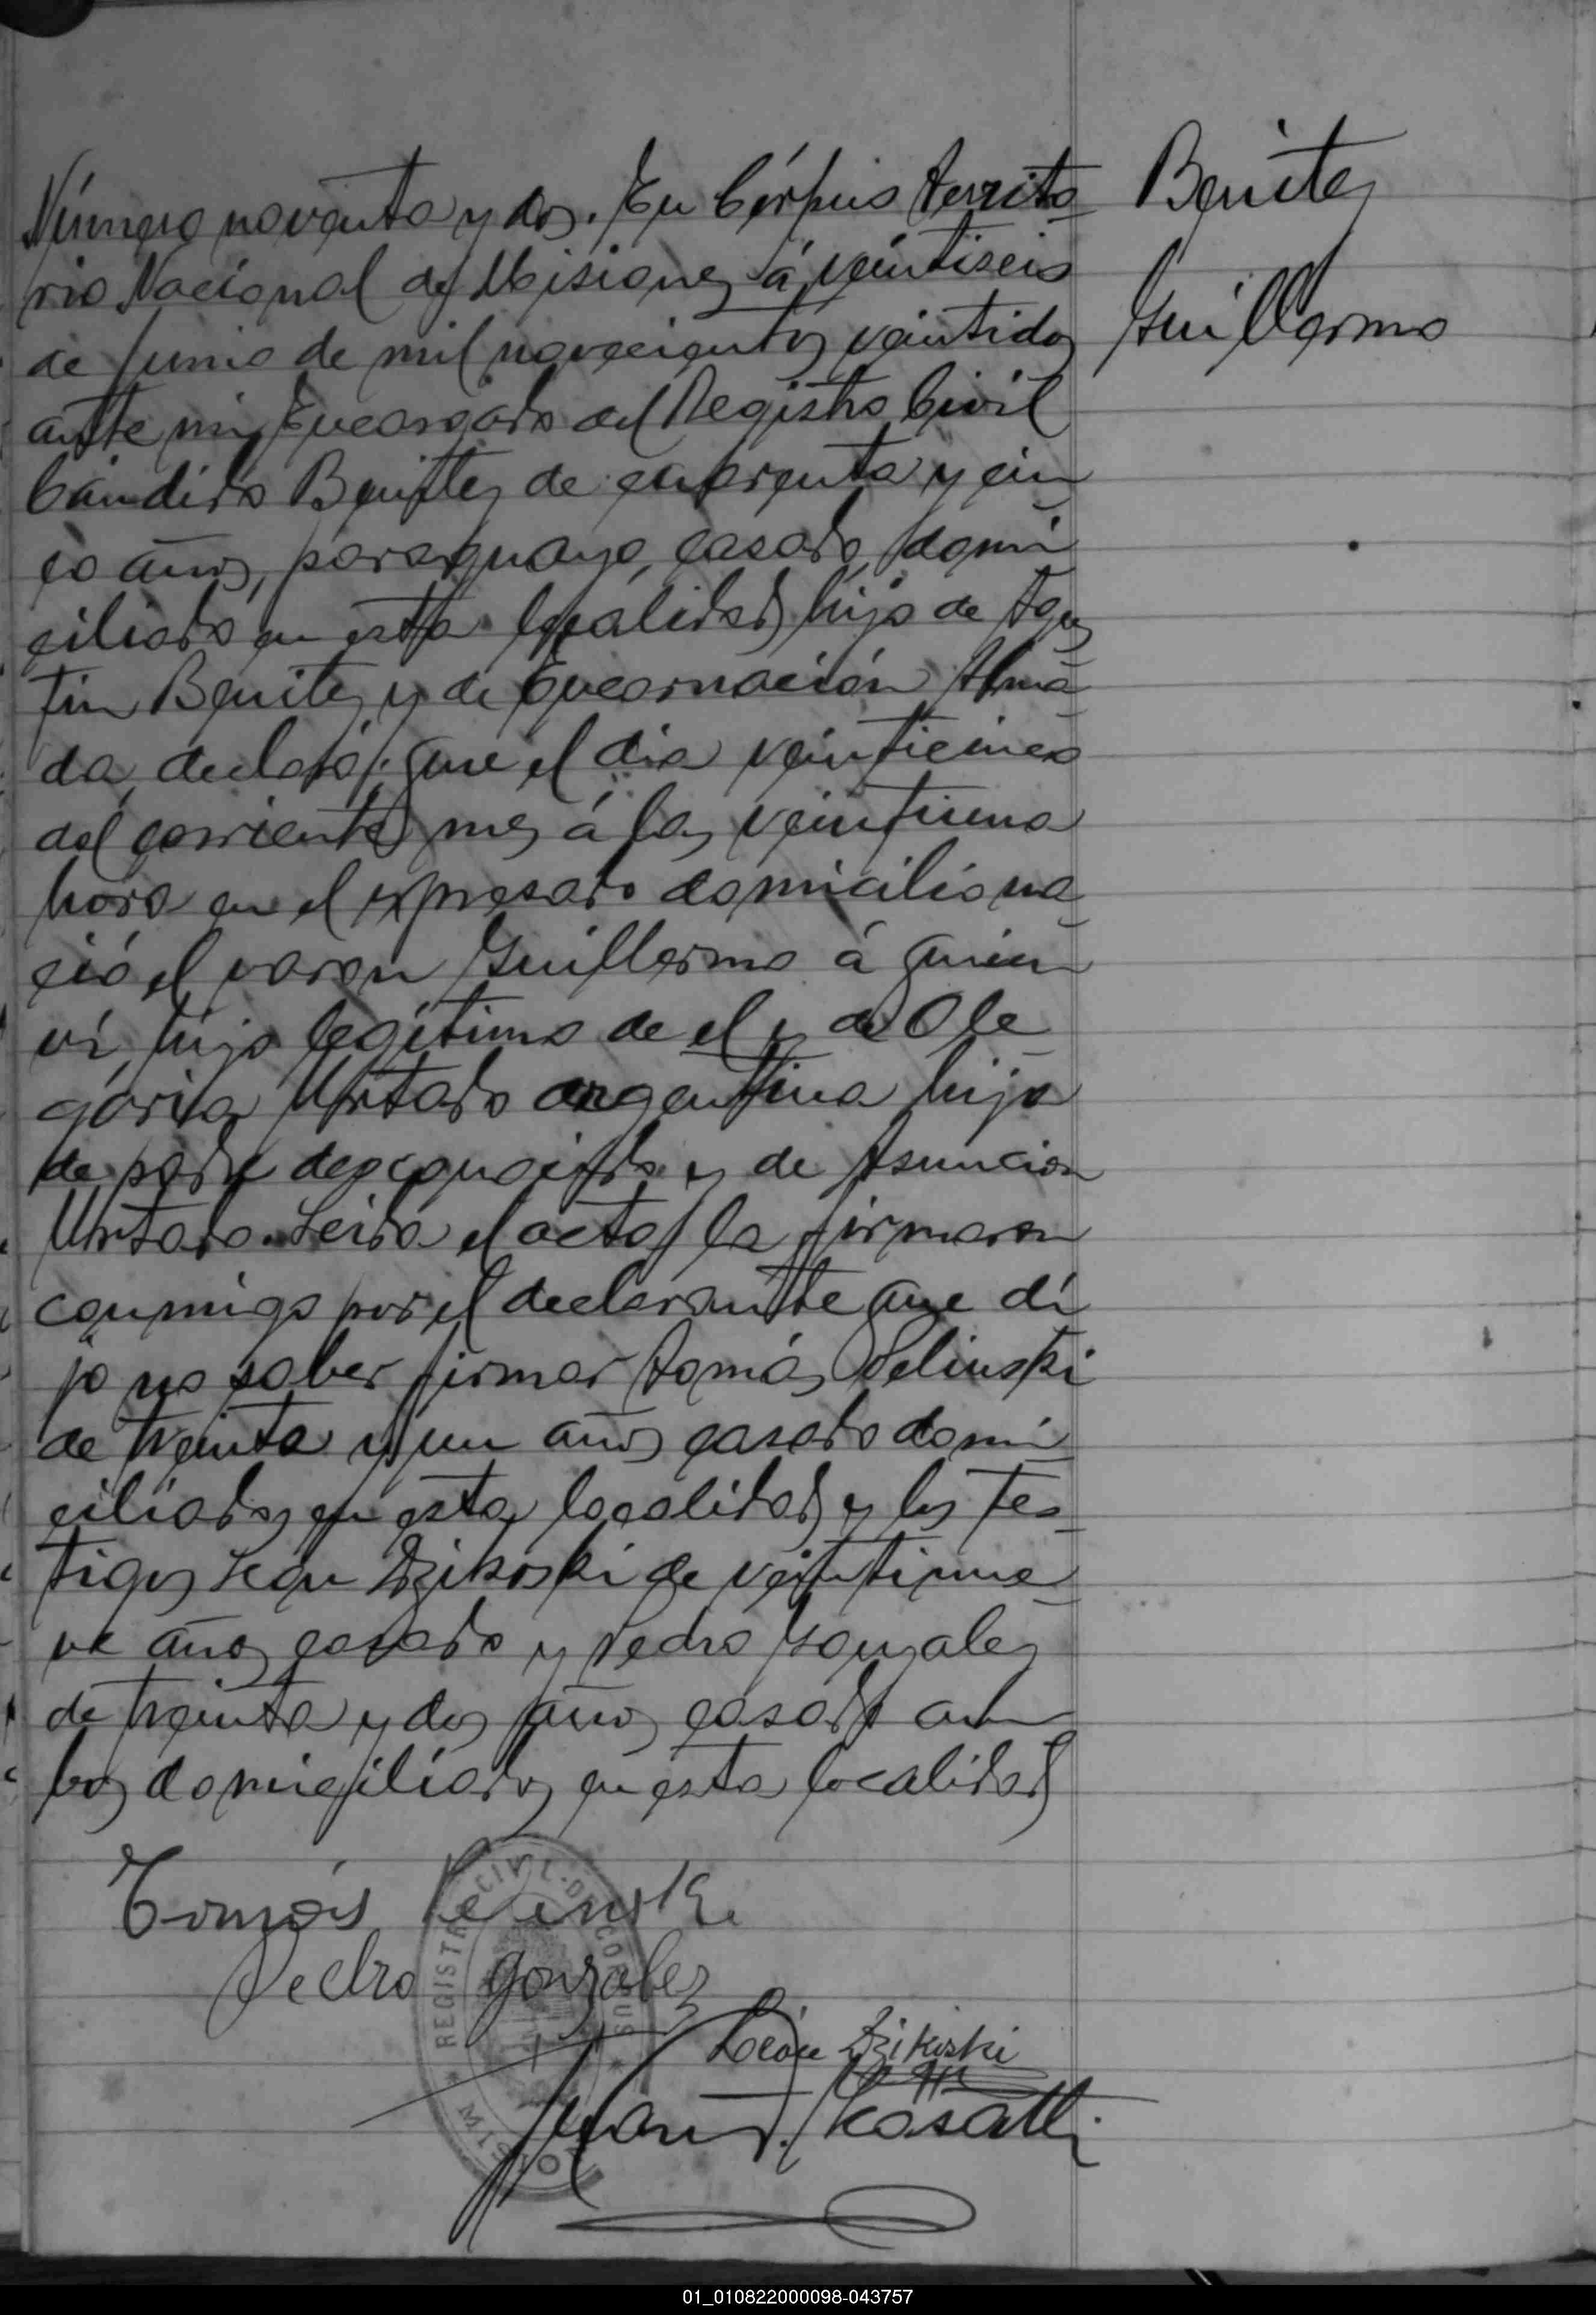 Número noventa y dos. En Córpus territo
rio Nacional de Misiones á veintiseis
de Junio de mil novecientos veintidos
ante mi Encargado del Registro Civil
Cándido Benitez de cuarenta y cin
co años, paraguayo, casado, domi
ciliado en esta localidad, hijo de Agus
tin Benitez y de Encarnación Alma
da, declaró: que el dia veinticinco
del corriente mes á las veintiuna
hora en el expresado domicilio na
ció el varon Guillermo á quien
ví, hijo legítimo de el y de Ole
goria Urtado argentina hija
de padre desconocido y de Asuncion
Urtado. Leida el acta la firmaron
conmigo por el declarante que di
jo no saber firmar Tomás Pelinski
de treinta y un años casado domi
ciliado en esta localidad y los tes
tigos León Dzikoski de veintinue
ve años casado y Pedro Gonzalez
de treinta y dos años casado am
bos domiciliados en esta localidad
Benitez
Guillermo
Tomás Pelinski
Pedro Gonzalez
León Dzikoski
Kosatti
REGISTRO CIVIL DE CORPUS
MISIONES
01_010822000098-043757